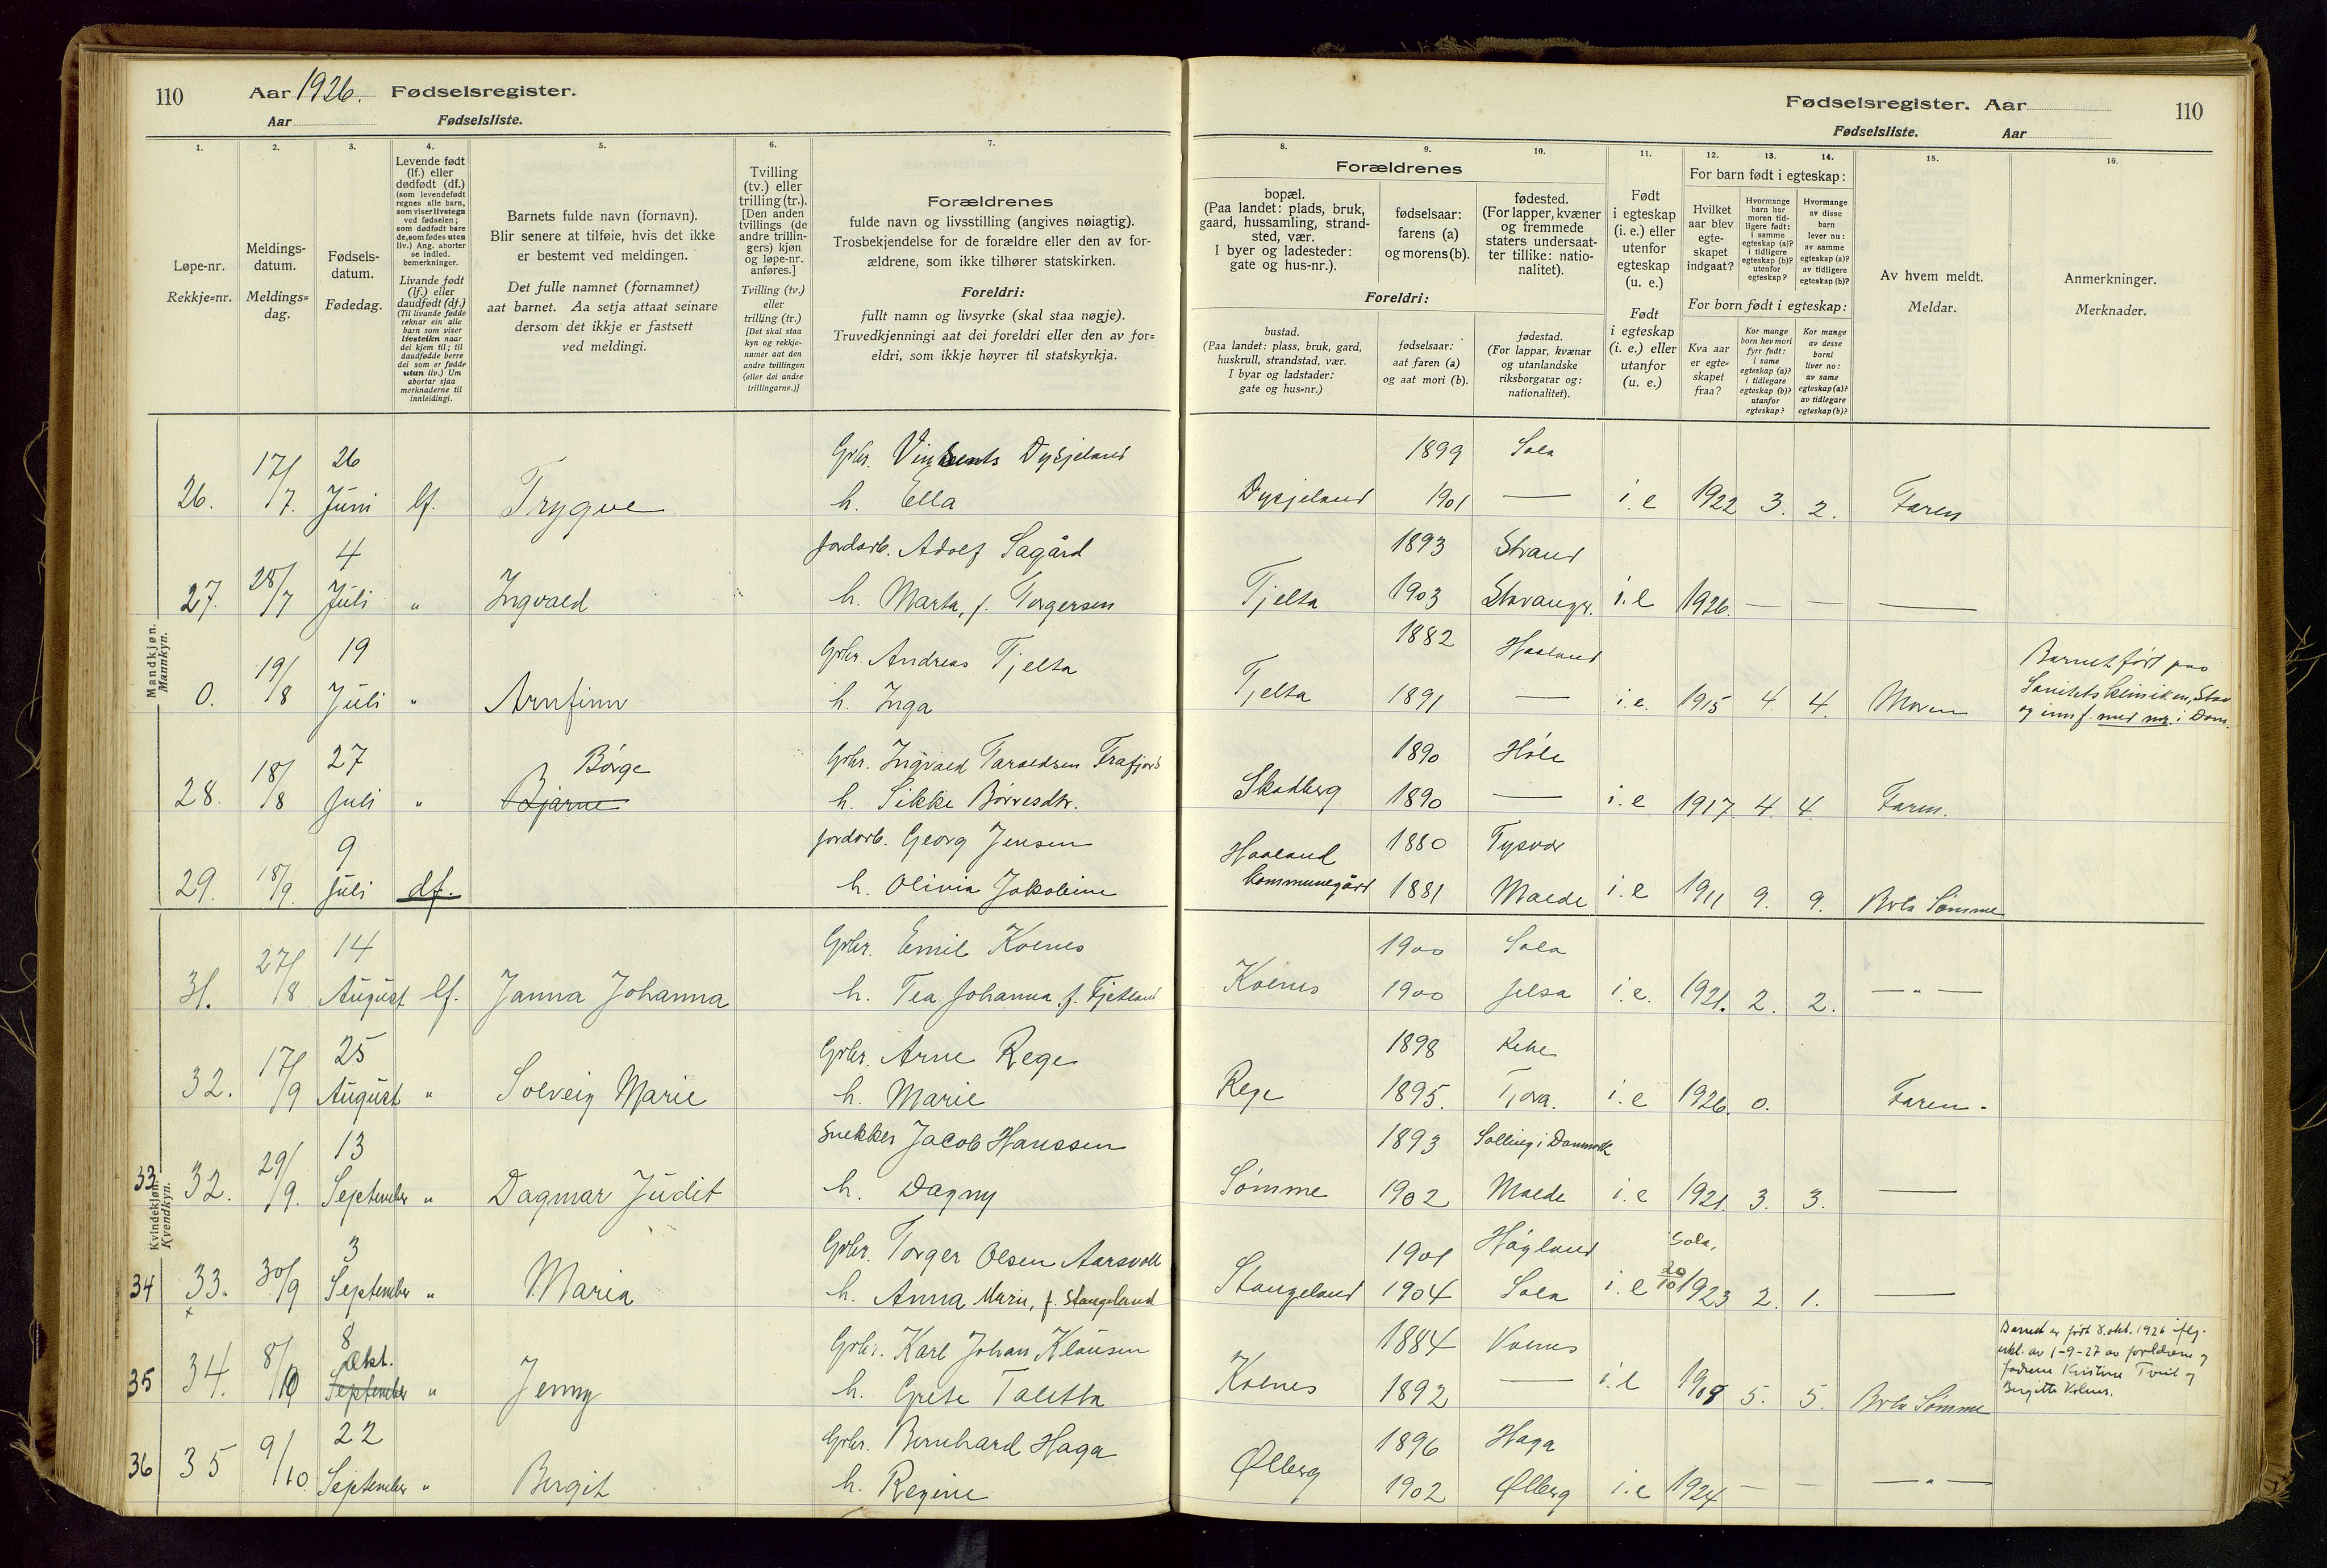 110 Aar 1926. Fødselsregister.
Aar Fødselsliste.
Fødselsregister. Aar 110
Fødselsliste. Aar
1. 2. 3. 4. 5. 6. 7. 8. 9. 10. 11. 12. 13. 14. 15. 16.
Løpe-nr.
Rekkje=nr.
Meldings-
datum.
Meldings=
dag.
Fødsels-
datum.
Fødedag.
Levende født
(lf.) eller
dødfødt (df.)
(som levendefødt
regnes alle barn,
som viser livstegn
ved fødselen;
som dødfødt bare
de, som fødes uten
liv.) Ang. aborter
se indled.
bemerkninger.
Livande født
(lf.) eller
daudfødt (df.)
(Til livande fødde
reknar ein alle
barn som viser
livsteikn naar
dei kjem til; til
daudfødde berre
dei som er fødde
utan liv.) Um
abortar sjaa
merknaderne til
innleidingi.
Barnets fulde navn (fornavn).
Blir senere at tilføie, hvis det ikke
er bestemt ved meldingen.
Det fulle namnet (fornamnet)
aat barnet. Aa setja attaat seinare
dersom det ikkje er fastsett
ved meldingi.
Tvilling
(tv.) eller
trilling (tr.).
[Den anden
tvillings (de
andre trillin-
gers) kjøn
og løpe-nr.
anføres.]
Tvilling (tv.)
eller
trilling (tr.)
[Det skal staa
kyn og rekkje-
numer aat den
andre tvillingen
(eller dei andre
trillingarne.)]
Forældrenes
fulde navn og livsstilling (angives nøiagtig).
Trosbekjendelse for de forældre eller den av for-
ældrene, som ikke tilhører statskirken.
Foreldri:
fullt namn og livsyrke (skal staa nøgje).
Truvedkjenningi aat dei foreldri eller den av for=
eldri, som ikkje høyrer til statskyrkja.
Forældrenes
bopæl.
(Paa landet: plads, bruk,
gaard, hussamling, strand-
sted, vær.
I byer og ladesteder:
gate og hus-nr.).
Foreldri:
bustad.
(Paa landet: plass, bruk, gard,
huskrull, strandstad, vær.
I byar og ladstader:
gate og hus=nr.)
fødselsaar:
farens (a)
og morens (b).
fødselsaar:
aat faren (a)
og aat mori (b).
fødested.
(For lapper, kvæner
og fremmede
staters undersaat-
ter tillike: natio-
nalitet).
fødestad.
(For lappar, kvænar
og utanlandske
riksborgarar og:
nationalitet).
Født
i egteskap
(i. e.) eller
utenfor
egteskap
(u. e.)
Født
i egteskap
(i. e.) eller
utanfor
(u. e.)
For barn født i egteskap:
Hvilket
aar blev
egte-
skapet
indgaat?
Hvormange
barn har
moren tid-
ligere født:
i samme
egteskap (a)?
i tidligere
egteskap (b)?
utenfor
egteskap?
Hvormange
av disse
barn
lever nu:
av samme
egteskap (a)?
av tidligere
egteskap (b)?
For born født i egteskap:
Kva aar
er egte-
skapet
fraa?
Kor mange
born hev mori
fyrr født:
i same
egteskap (a)?
i tidlegare
egteskap (b)?
utanfor
egteskap?
Kor mange
av desse
borni
liver no:
av same
egteskap (a)?
av tidlegare
egteskap (b)?
Av hvem meldt.
Meldar.
Anmerkninger.
Merknader.
Mandkjøn.
Mannkyn.
26 Gbr. Vinsents Dysjeland 1899 Sola
26. 17/7. Juni lf. Trygve h. Ella Dysjeland 1901 — i. e 1922 3. 2. Faren
4 Jordarb. Adolf Sagård 1893 Strand
27. 28/7 Juli " Ingvald h. Marta, f. Torgersen Tjelta 1903 Stavanger. i. e 1926. — — —
19 Gbr. Andreas Tjelta 1882 Haaland Barnet født paa
0. 19/8 Juli " Arnfinn h. Inga Tjelta 1891 — i. e. 1915 4. 4. Moren Sanitetsklinikken, Stav
og innf. med nr. i Dom.
27 Børge Gbr. Ingvald Taraldsen Frafjord 1890 Høle
28. 18/8 Juli " Bjarne h. Sikke Børresdtr. Skadberg 1890 — i. e 1917. 4. 4. Faren.
9 Jordarb. Georg Jensen Haaland 1880 Tysvær
29. 18/9. Juli df. h. Olivia Jakobine kommunegård 1881 Molde i. e 1911 9. 9. Brta Sømme
Kvindekjøn.
Kvendkyn.
14 Gbr. Emil Kolnes 1900 Sola
31. 27/8 August lf. Janna Johanna h. Tea Johanna f. Fjetland Kolnes 1900 Jelsa i. e. 1921. 2. 2. — " —
25 Gbr. Arne Rege 1898 Rege
32. 17/9 August " Solveig Marie h. Marie Rege 1895. Tjora. i. e 1926. 0. Faren.
13 Snekker Jacob Hanssen 1893 Salling i Danmark
33. 32. 29/9. September " Dagmar Judit h. Dagny Sømme 1902 Molde i. e 1921. 3. 3. —
3 Gbr. Torger Olsen Aarsvoll 1901 Høgland Sola,
34 33. 30/9 September " Maria h. Anna Marie, f. Stangeland Stangeland 1904 Sola i. e 20/10 1923 2. 1. —
8 Gbr. Karl Johan Klausen 1884 Kolnes Barnet er født 8. okt. 1926 iflg.
Okt. erkl. av 1-9-27 av foreldrene og
35 34. 8/10 September " Jenny h. Grete Taletta Kolnes 1892 — i. e 1908 5. 5. Brta Sømme fadrene Kristine Tveit og
Birgitte Kolnes.
22 Gbr. Bernhard Haga 1896 Haga
36 35 9/10 September " Bergit h. Regine Ølberg 1902 Ølberg i. e 1924 — — — " —